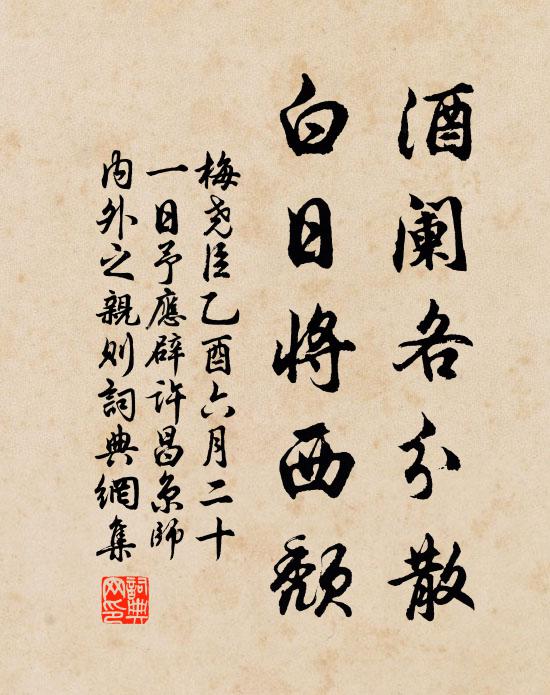 酒阑各分散
白日将西颓
梅尧臣乙酉六月二十
一日予應辟许昌京師
内外之親则詞典網集
詞典网印